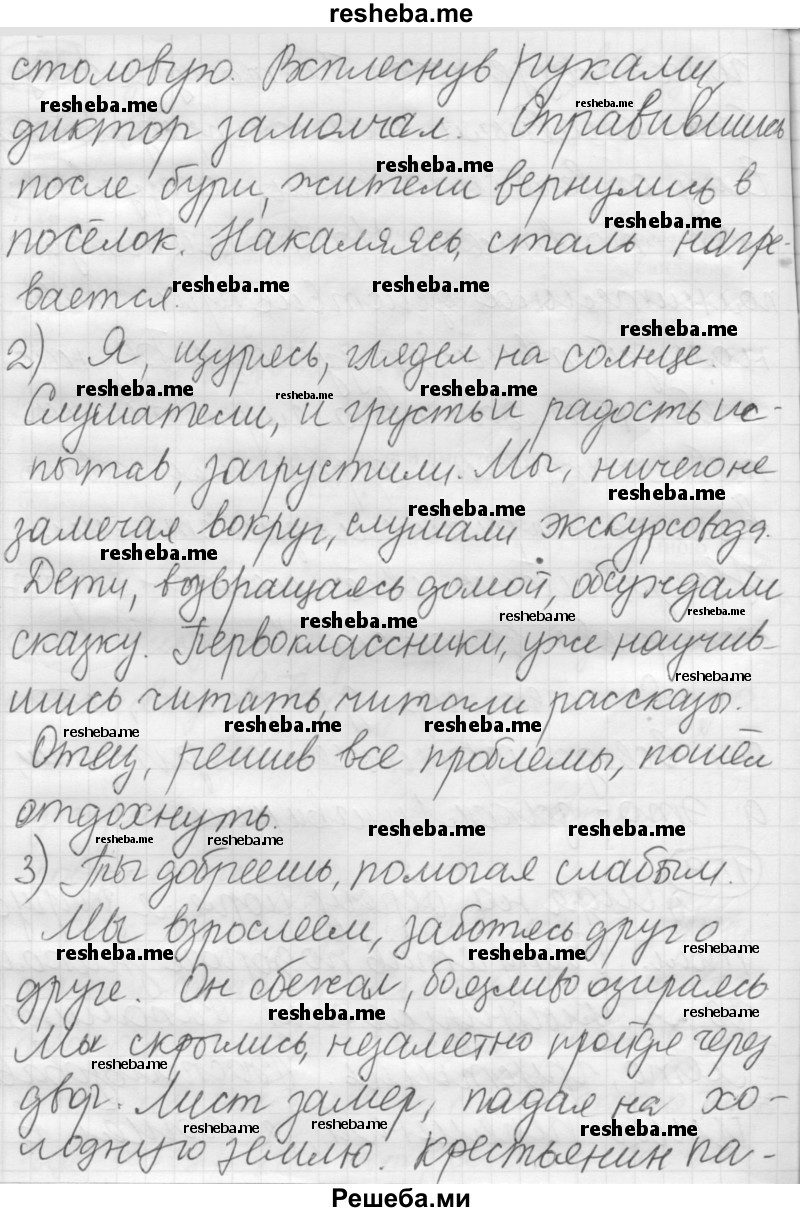 resheba.me
столовую. Всплеснув руками,
resheba.me resheba.me
диктор замолчал. Оправившись
resheba.me
после бури, жители вернулись в
resheba.me
посёлок. Накаляясь, сталь нагре-
resheba.me resheba.me
вается.
resheba.me
2) Я, щурясь, глядел на солнце.
resheba.me resheba.me resheba.me
Слушатели, и грусть и радость ис-
пытав, загрустили. Мы, ничего не
resheba.me resheba.me
замечая вокруг, слушали экскурсовода.
resheba.me
Дети, возвращаясь домой, обсуждали
resheba.me resheba.me resheba.me
сказку. Первоклассники, уже научив-
resheba.me
шись читать, читали рассказы.
resheba.me resheba.me resheba.me
Отец, решив все проблемы, пошёл
отдохнуть.
resheba.me resheba.me resheba.me resheba.me
3) Ты добреешь, помогая слабым.
Мы взрослеем, заботясь друг о
resheba.me resheba.me resheba.me
друге. Он сбежал, боязливо озираясь
resheba.me resheba.me
Мы скрылись, незаметно пройдя через
resheba.me
двор. Лист замер, падая на хо-
resheba.me resheba.me resheba.me
лодную землю. Крестьянин па-
Решеба.ми